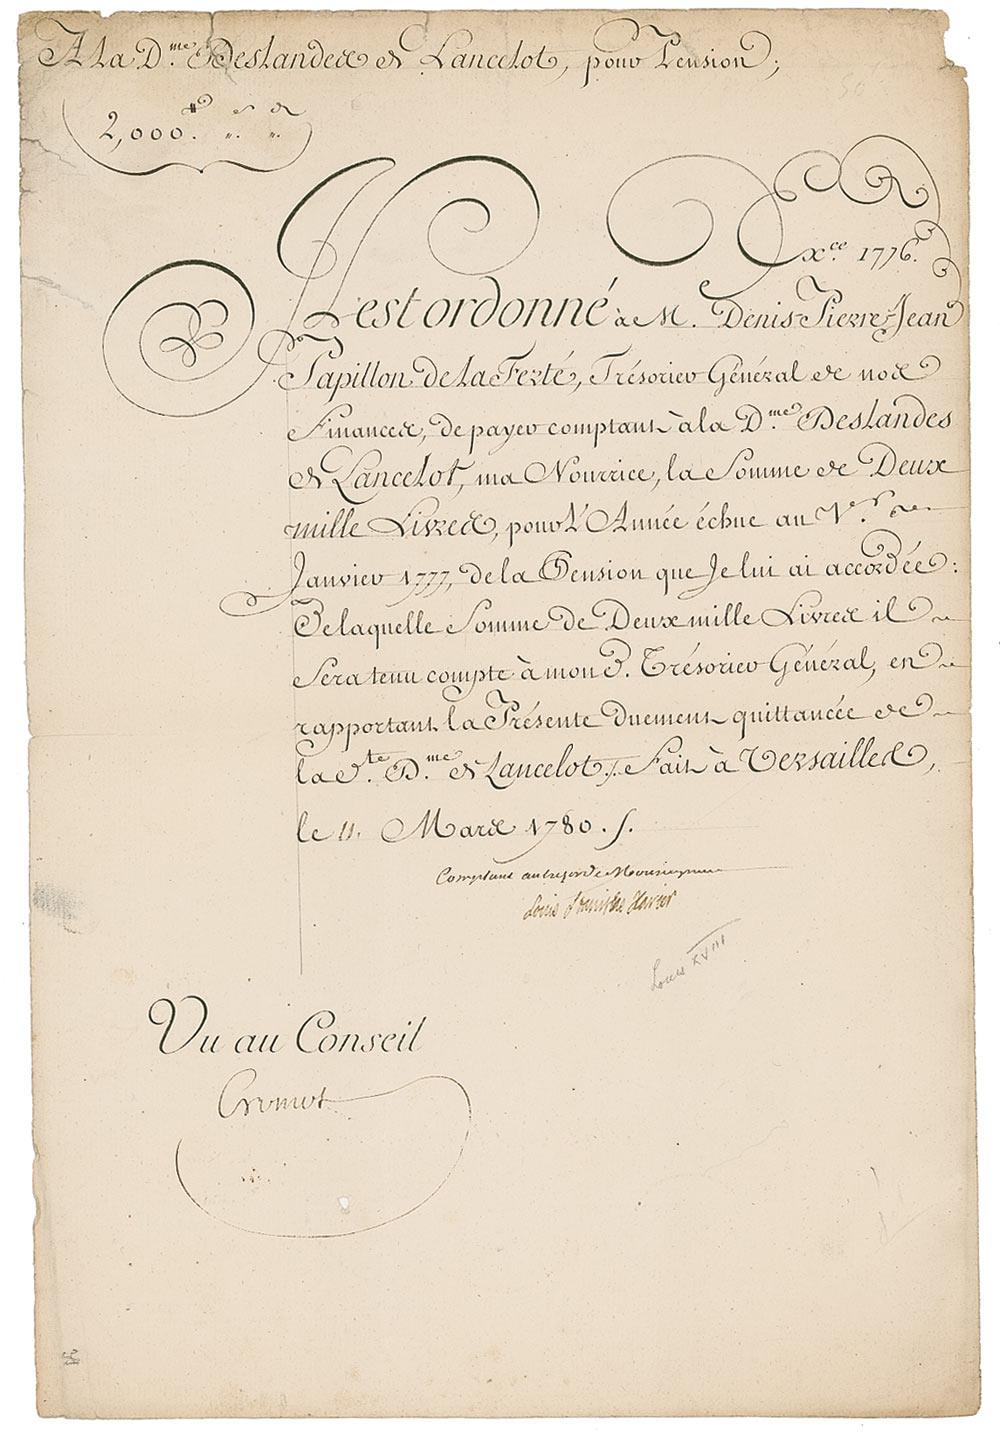 A la D.me Deslandes et Lancelot, pour Pension;
2,000.# s d
". ".
Xce. 1776.
Il est ordonné à M. Denis-Pierre-Jean
Papillon de la Ferté, Trésorier Général de nos
Finances, de payer comptant à la D.me Deslandes
et Lancelot, ma Nourrice, la Somme de Deux
mille Livres, pour l'Année échue au 1.er
Janvier 1777, de la Pension que Je lui ai accordée:
De laquelle Somme de Deux mille Livres il
Sera tenu compte à mon d. Trésorier Général, en
rapportant la Présente Duement quittancée de
la d.te D.me et Lancelot ./. Fait à Versailles,
le 11. Mars 1780. /.
Comptant au trésor de Monseigneur
Louis Stanislas Xavier
Louis XVIII
Vu au Conseil
Cromot